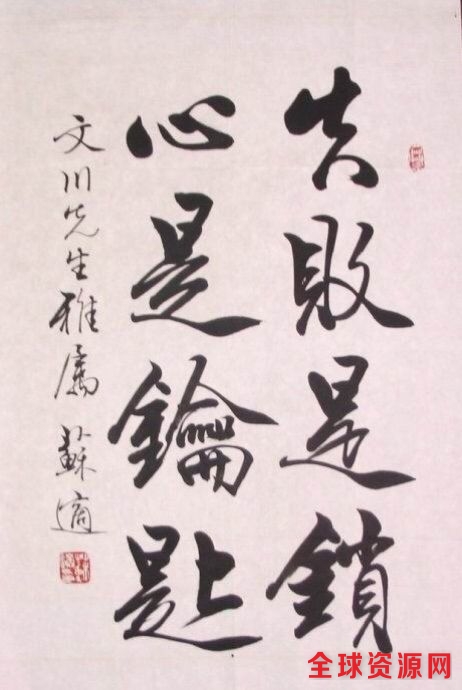 失敗是鎖
心是鑰匙
文川先生雅屬 蘇適
全球资源网